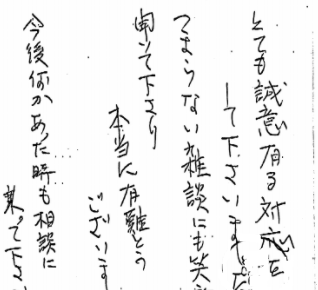 とても誠意有る対応を
して下さいました
つまらない雑談にも笑
聞いて下さり
本当に有難とう
ございます
今後何かあった時も相談に
乗って下さ